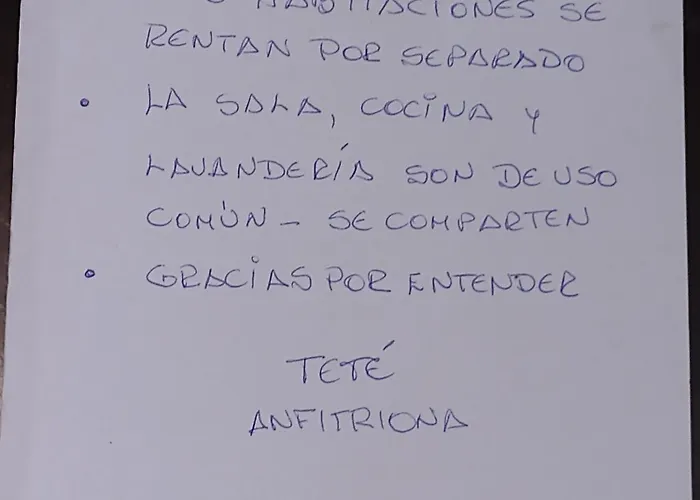 HABITACIONES SE
RENTAN POR SEPARADO
• LA SALA, COCINA Y
LAVANDERÍA SON DE USO
COMÚN - SE COMPARTEN
• GRACIAS POR ENTENDER
TETÉ
ANFITRIONA